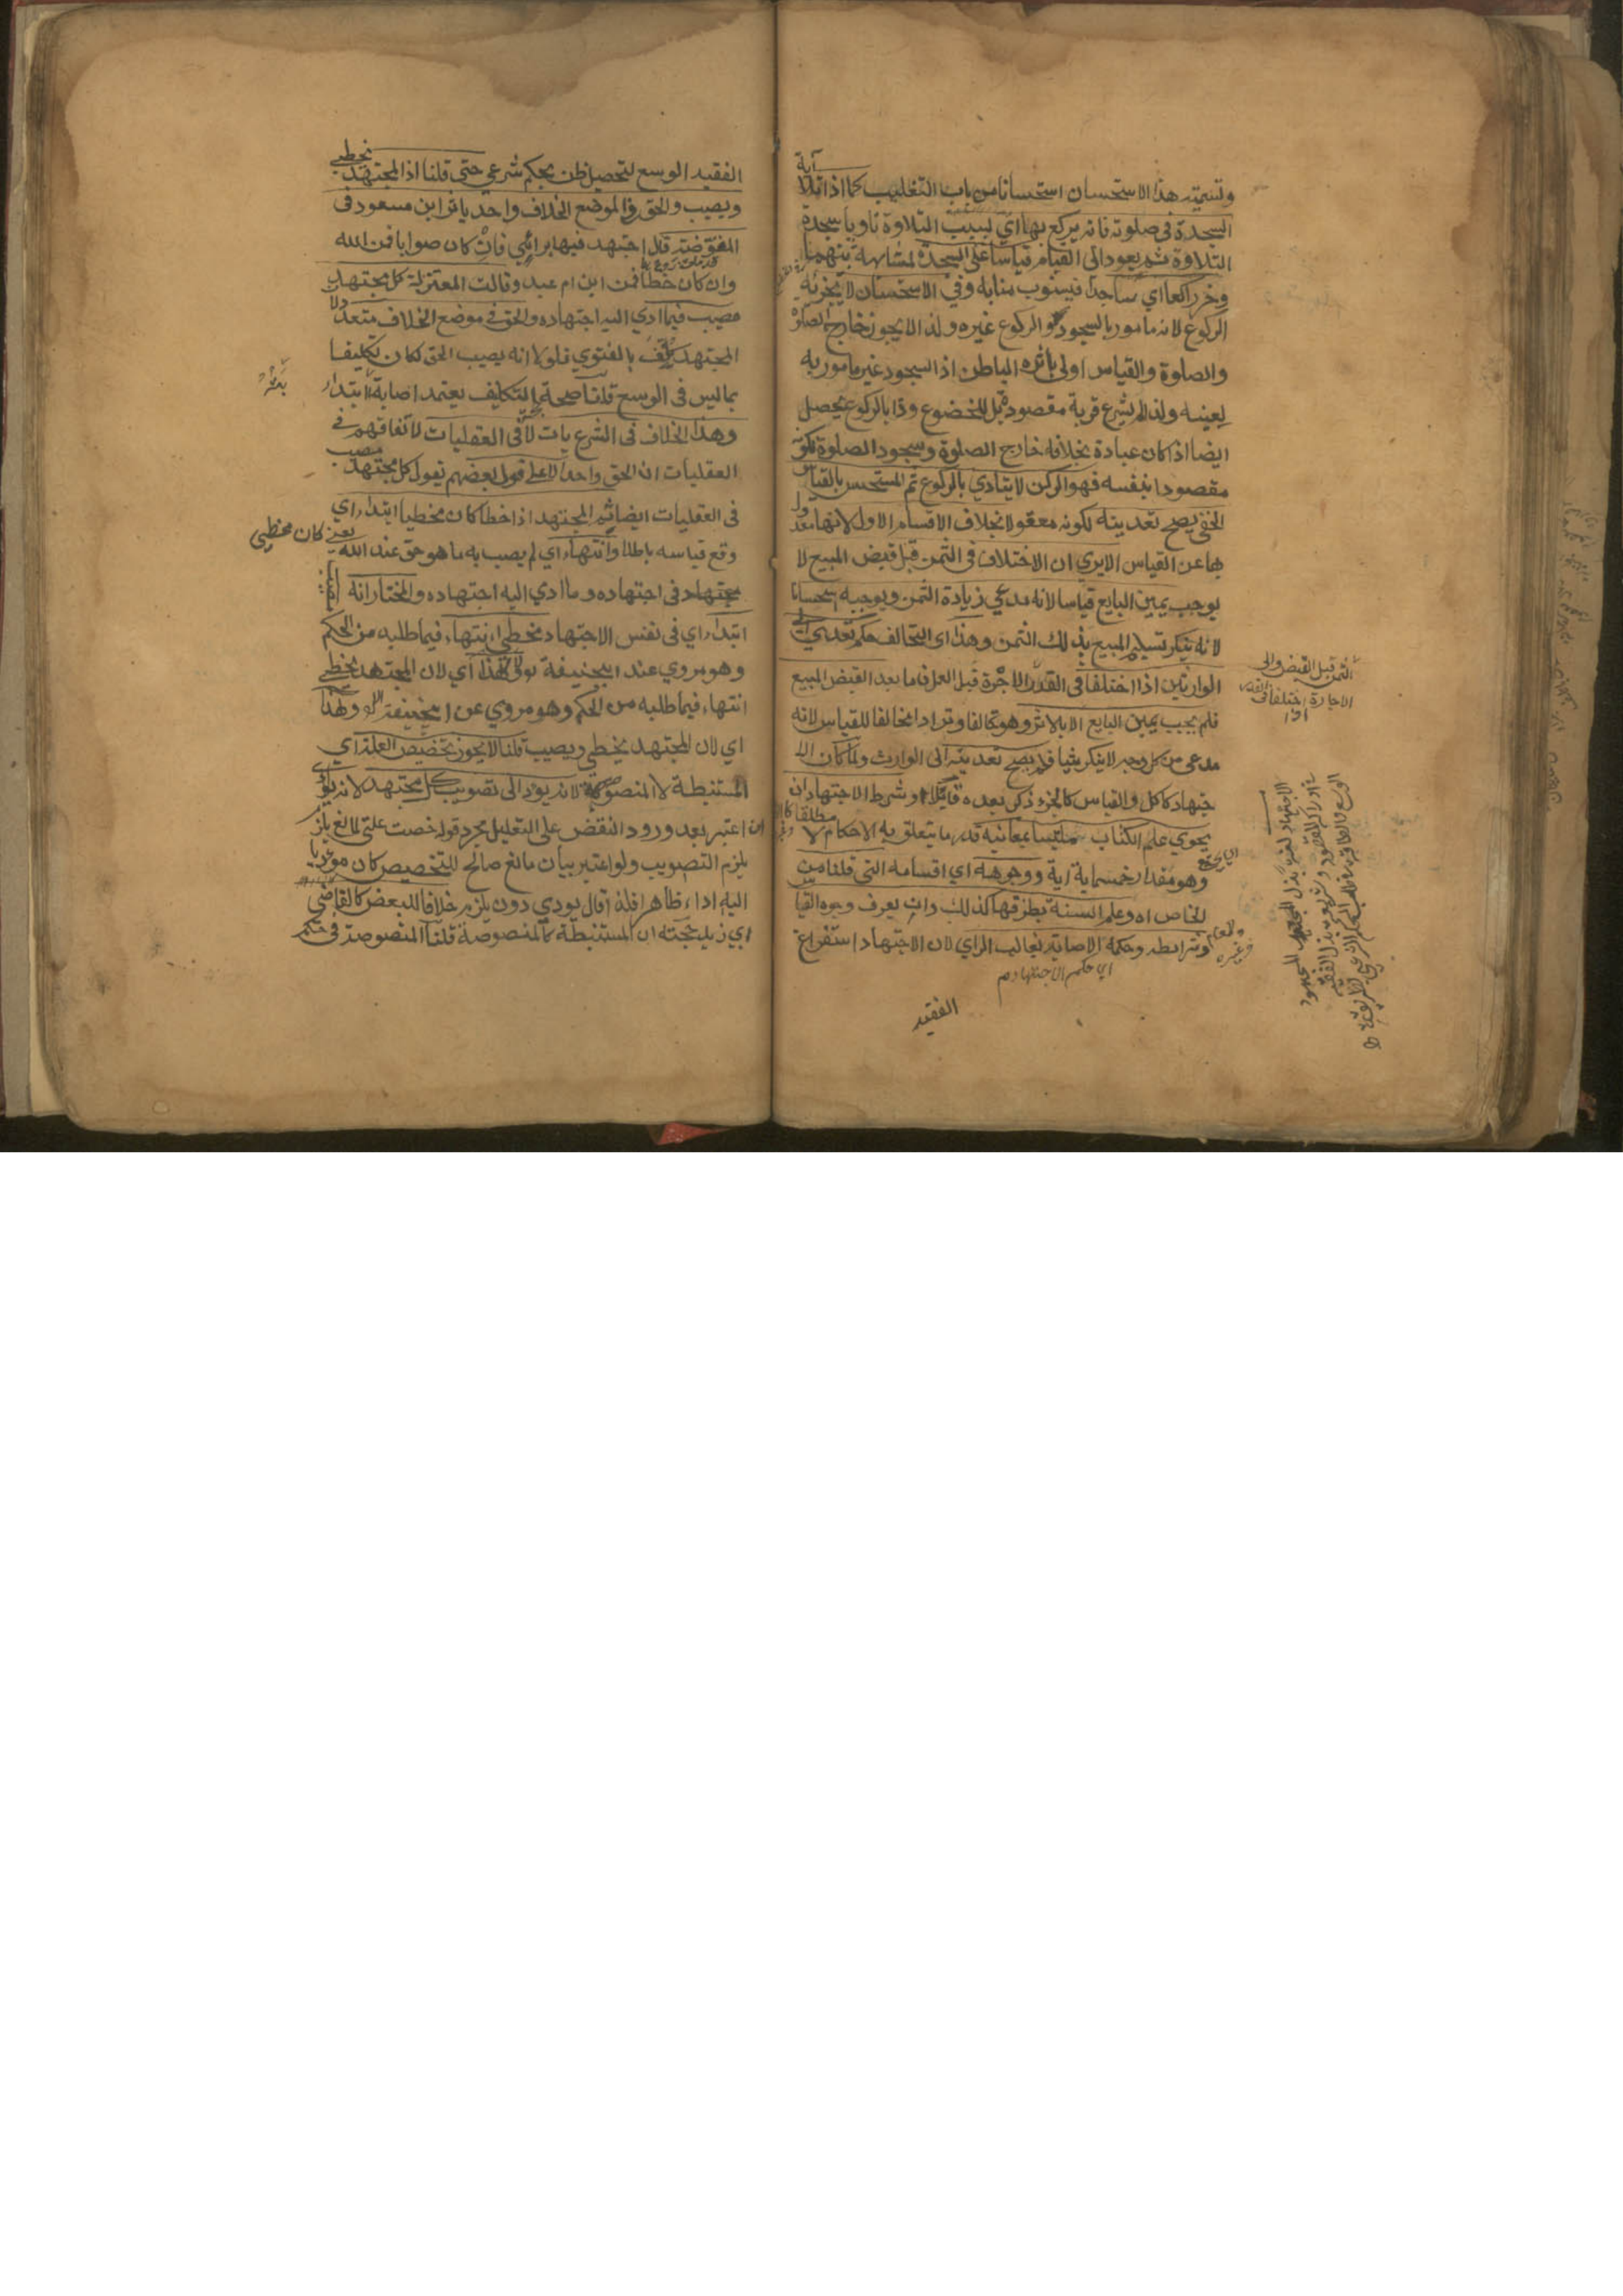 وتسمية هذا الاستحسان استحسانا من باب التغليب كما اذا تلا آية
السجدة فى صلوته فانه يركع بها اي بسبب التلاوة ناويا سجدة
التلاوة ثم يعود الى القيام قياسا على السجدة لمشابهة بينهما
وخر راكعا اي ساجدا فينوب منابه وفي الاستحسان لا يجزئه
الركوع لانه مامور بالسجود والركوع غيره ولذا لا يجوز خارج الصلوة
والصلوة والقياس اولى باثره الباطن اذ السجود غير مامور به
لعينه ولذا لم يشرع قربة مقصودة بل للخضوع وذا بالركوع يحصل
ايضا اذ كان عبادة بخلافه خارج الصلوة وسجود الصلوة لكونه
مقصودا بنفسه فهو الركن لا يتادي بالركوع ثم المستحسن بالقياس
الخفي يصح تعديته لكونه معقولا بخلاف الاقسام الاول لانها معدول
بها عن القياس الا يري ان الاختلاف فى الثمن قبل قبض المبيع لا
يوجب يمين البايع قياسا لانه مدعي زيادة الثمن ويوجبه استحسانا
لانه ينكر تسليم المبيع بذلك الثمن وهذا اى التحالف حكم تعدى الى
الوارثين اذا اختلفا فى القدر الاجرة قبل العمل فاما بعد القبض المبيع
فلم يجب يمين البايع الا بالاثر وهو تحالفا وترادا مخالفا للقياس لانه
مدعى من كل وجه لا ينكر شيا فلم يصح تعديته الى الوارث ولما كان الا
جتهاد كالكل والقياس كالجزء ذكر بعده قائلا وشرط الاجتهاد ان
يحوي علم الكتاب ملتبسا بمعانيه قدر ما يتعلق به الاحكام لا مطلقا
وهو مقدار خمسماية اية ووجوهه اي اقسامه التى قلنا من
الخاص اه وعلم السنة بطرقها كذلك وان يعرف وجوه القيا
وشرائطه وحكمه الاصابة بغالب الراي لان الاجتهاد استفراغ
اي حكم الاجتهاد
الفقيه
الثمن قبل القبض والى
الاجارة اختلفا فى القدر
الفقيه الوسع لتحصيل ظن بحكم شرعي حتى قلنا اذ المجتهد يخطي
ويصيب والحق فى موضع الخلاف واحد باثر ابن مسعود فى
المفوضة قال اجتهد فيها برائي فان كان صوابا فمن الله
وان كان خطا فمن ابن ام عبد وقالت المعتزلة كل مجتهد
مصيب فيما ادي اليه اجتهاده والحق فى موضع الخلاف متعدد لان
المجتهد كلف بالفتوي فلولا انه يصيب الحق لكان تكليفا
بما ليس فى الوسع قلنا صحة التكليف يعتمد اصابة ابتداء
وهذا الخلاف فى الشرعيات لا فى العقليات لاتفاقهم فى
العقليات ان الحق واحد الا على قول بعضهم يقول كل مجتهد مصيب
فى العقليات ايضا ثم المجتهد اذا خطا كان مخطيا ابتداء اي
وقع قياسه باطلا وانتهاء اي لم يصب به ما هو حق عند الله يعنى كان مخطي
مجتهاد فى اجتهاده وما ادي اليه اجتهاده والمختار انه
ابتداء اي فى نفس الاجتهاد مخطي انتهاء فيما طلبه من الحكم
وهو مروي عند ابيحنيفة ولهذا اي لان المجتهد يخطي
انتهاء فيما طلبه من الحكم وهو مروي عن ابيحنيفة ولهذا
اي لان المجتهد يخطي ويصيب قلنا لا يجوز تخصيص العلة اي
المستنبطة لا المنصوصة لانه يود الى تصويب كل مجتهد لانه
ان اعتبر بعد ورود النقض على التعليل مجرد قوله خصت علتى لمانع يلزم
يلزم التصويب ولو اعتبر بيان مانع صالح للتخصيص كان موديا
اليه اداء ظاهرا فلذا قال يودي دون يلزم خلافا للبعض كالقاضى
ابي زيد حجته ان المستنبطة كالمنصوصة قلنا المنصوصة فى حكم